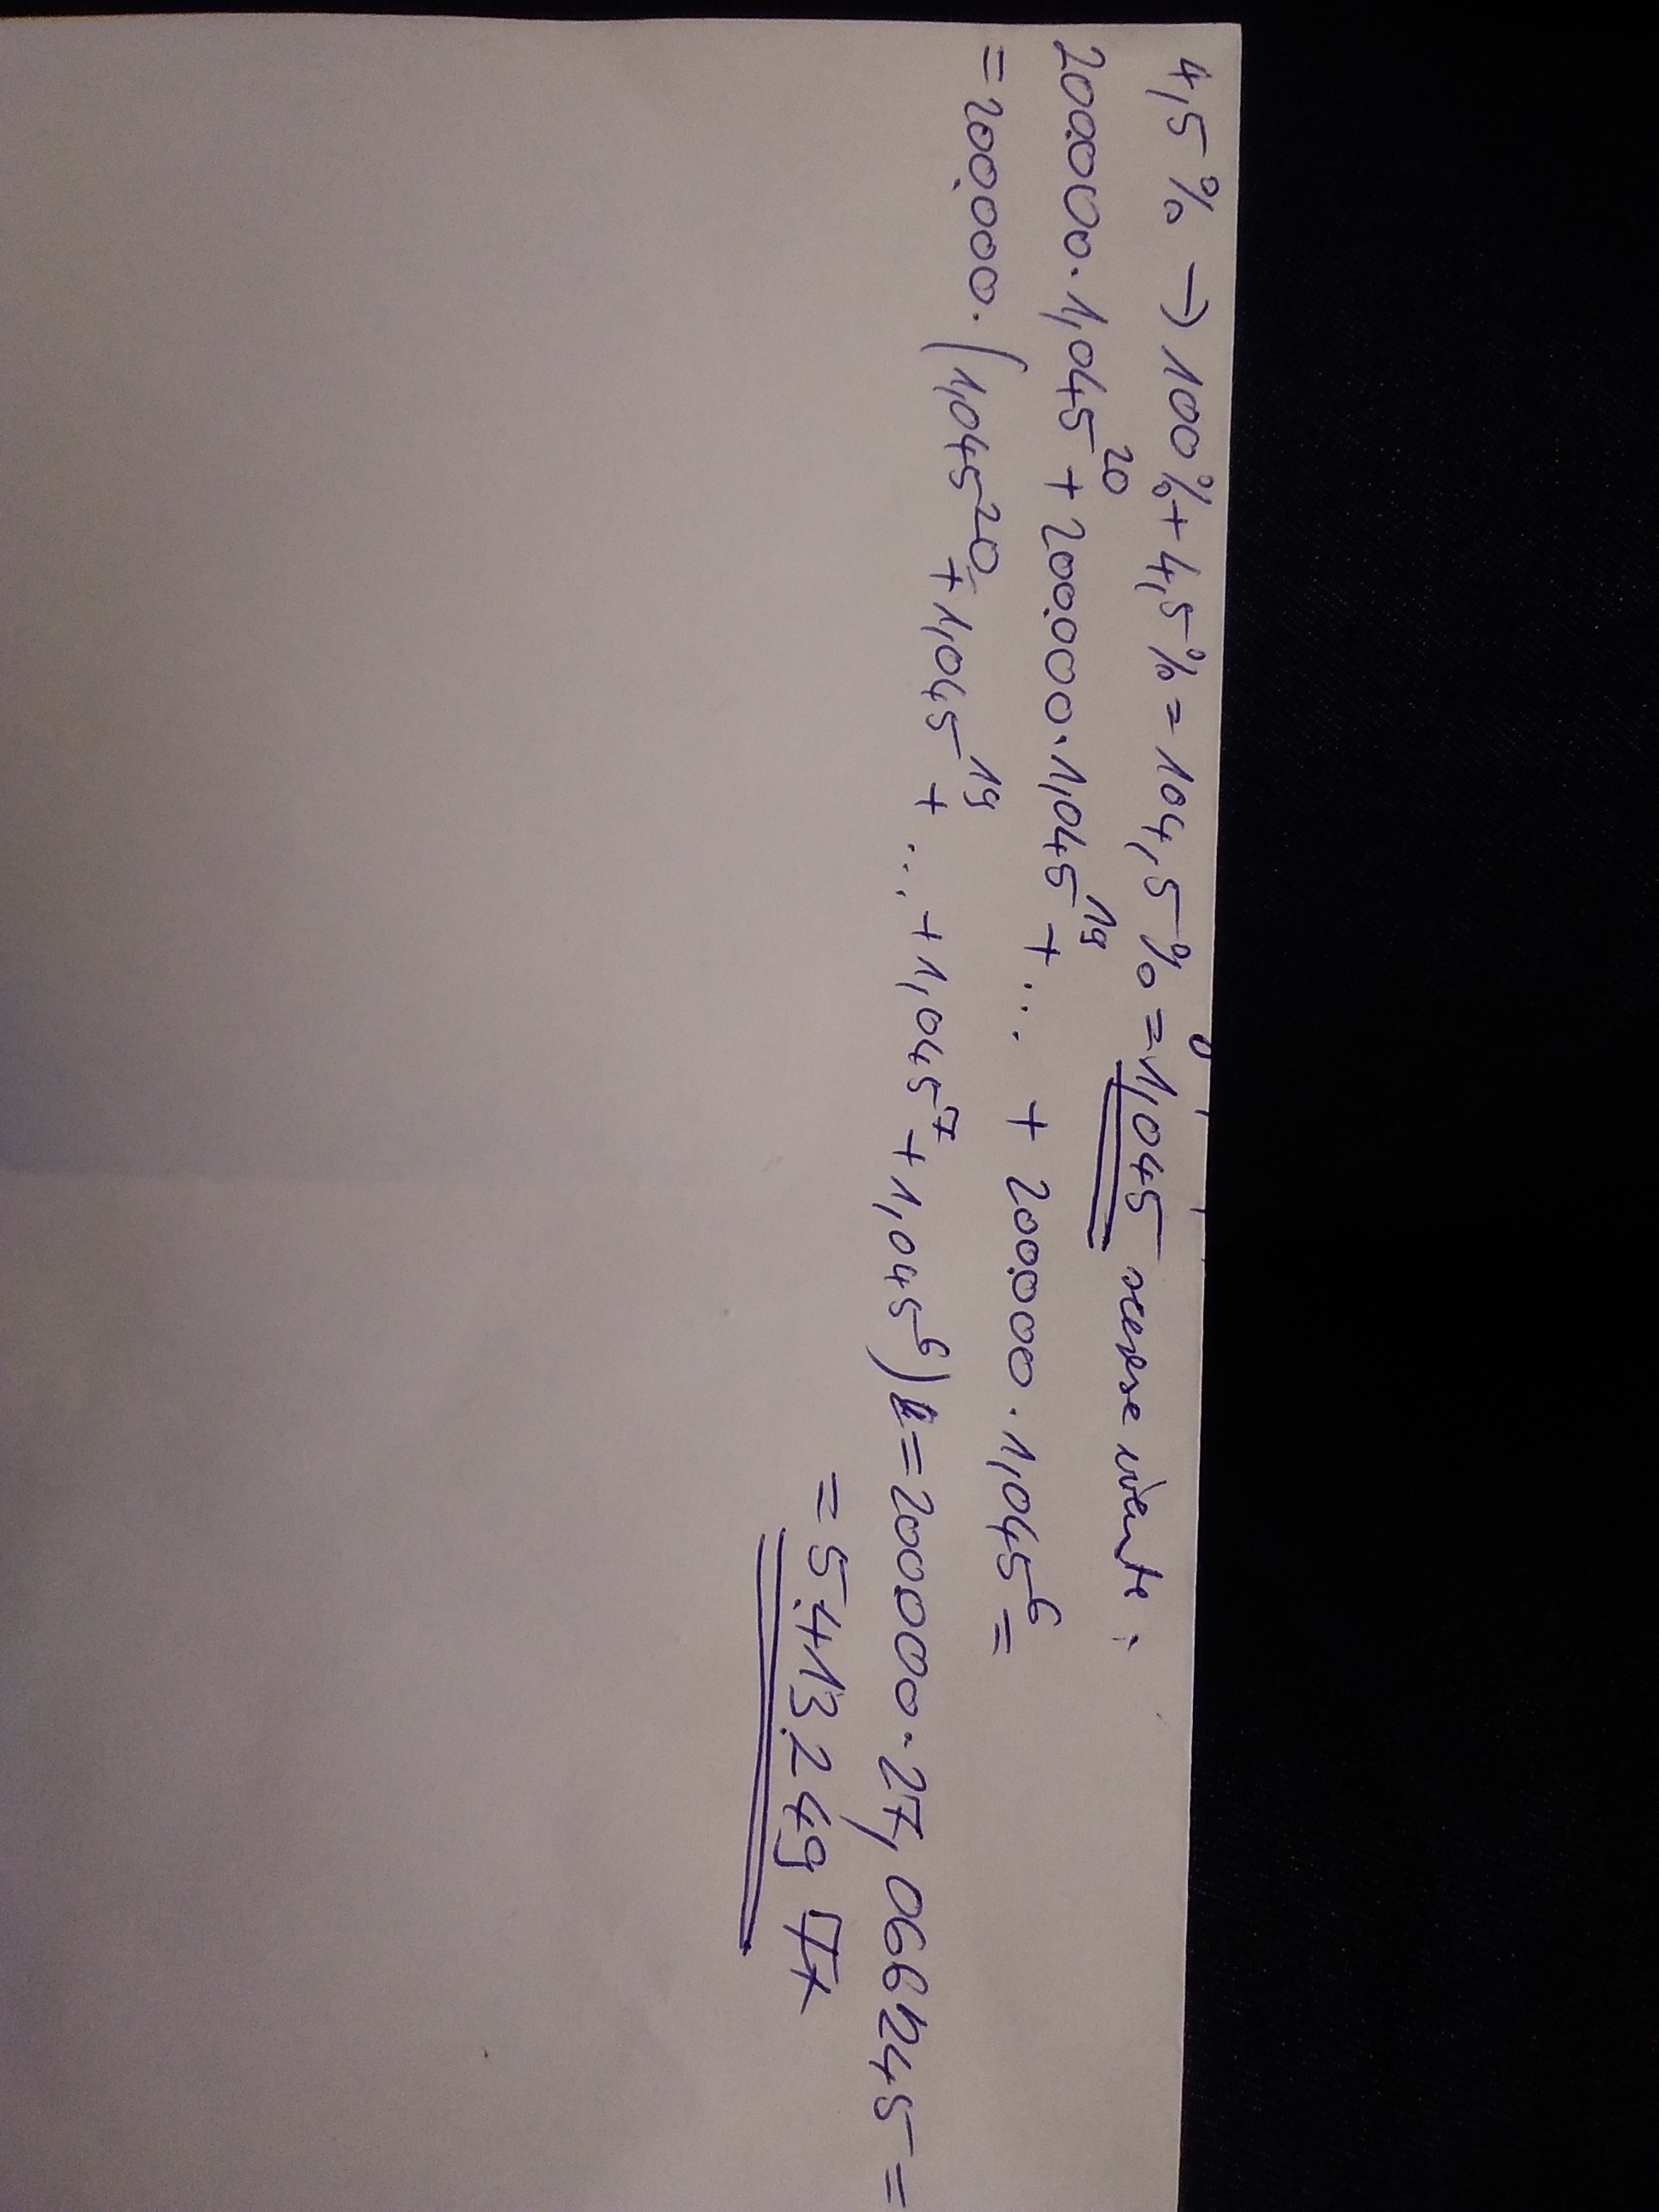 4,5% → 100%+4,5% = 104,5% = 1,045 szerese évente:
200.000·1,045²⁰ + 200.000·1,045¹⁹ + ... + 200.000·1,045⁶ =
= 200.000·(1,045²⁰ + 1,045¹⁹ + ... + 1,045⁷ + 1,045⁶) = 200.000·27,066245 =
= 5.413.249 Ft